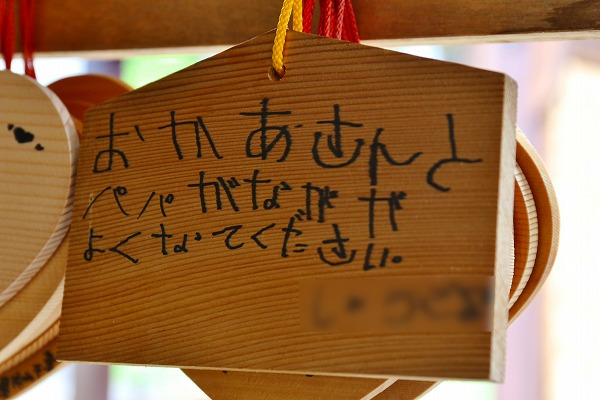 おかあさんと
パパがなかが
よくなてください